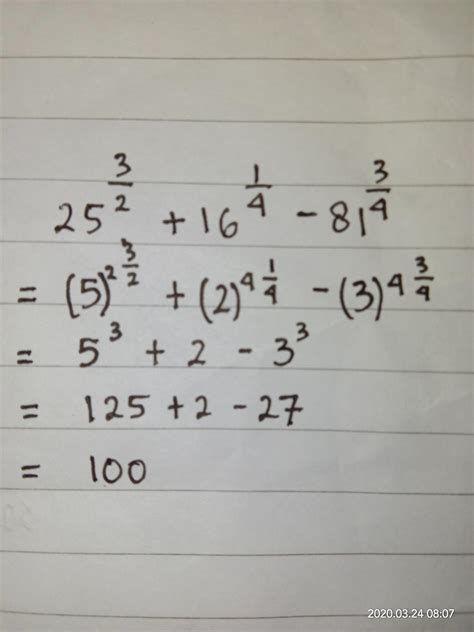 25^(3/2) + 16^(1/4) - 81^(3/4)
= (5)^(2 3/2) + (2)^(4 1/4) - (3)^(4 3/4)
= 5^3 + 2 - 3^3
= 125 + 2 - 27
= 100
2020.03.24 08:07